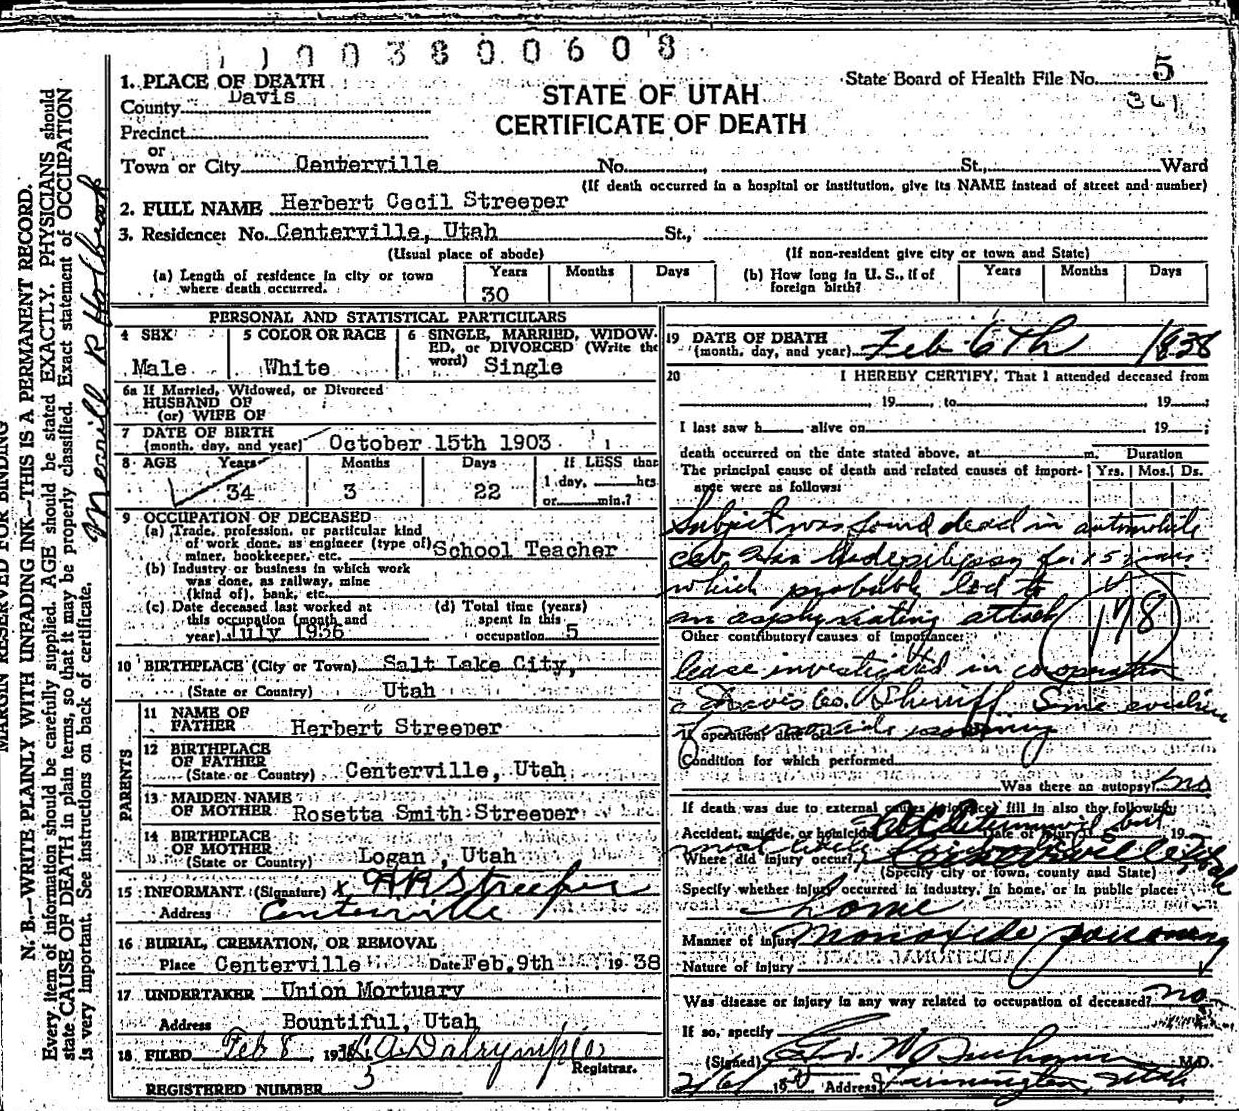 1003800608
1. PLACE OF DEATH
State Board of Health File No. 5
361
County Davis
STATE OF UTAH
CERTIFICATE OF DEATH
Precinct
or
Town or City Centerville No. , St., Ward
(If death occurred in a hospital or institution, give its NAME instead of street and number)
2. FULL NAME Herbert Cecil Streeper
3. Residence: No. Centerville, Utah St.,
(Usual place of abode) (If non-resident give city or town and State)
(a) Length of residence in city or town where death occurred. Years 30 Months Days
(b) How long in U. S., if of foreign birth? Years Months Days
PERSONAL AND STATISTICAL PARTICULARS
4 SEX Male
5 COLOR OR RACE White
6 SINGLE, MARRIED, WIDOWED, or DIVORCED (Write the word) Single
6a If Married, Widowed, or Divorced
HUSBAND OF
(or) WIFE OF
7 DATE OF BIRTH
(month, day, and year) October 15th 1903
8 AGE Years 34 Months 3 Days 22 If LESS than
1 day, hrs
or min.?
9 OCCUPATION OF DECEASED
(a) Trade, profession, or particular kind
of work done, as engineer (type of)
miner, bookkeeper, etc. School Teacher
(b) Industry or business in which work
was done, as railway, mine
(kind of), bank, etc.
(c) Date deceased last worked at
this occupation (month and
year) July 1936
(d) Total time (years)
spent in this
occupation 5
10 BIRTHPLACE (City or Town) Salt Lake City,
(State or Country) Utah
PARENTS
11 NAME OF
FATHER Herbert Streeper
12 BIRTHPLACE
OF FATHER
(State or Country) Centerville, Utah
13 MAIDEN NAME
OF MOTHER Rosetta Smith Streeper
14 BIRTHPLACE
OF MOTHER
(State or Country) Logan, Utah
15 INFORMANT (Signature) x H H Streeper
Address Centerville
16 BURIAL, CREMATION, OR REMOVAL
Place Centerville Date Feb. 9th 1938
17 UNDERTAKER Union Mortuary
Address Bountiful, Utah
18 FILED Feb 8, 1938 A. Dalrymple
Registrar.
REGISTERED NUMBER 5
19 DATE OF DEATH
(month, day, and year) Feb 6th 1938
20 I HEREBY CERTIFY, That I attended deceased from
, 19 , to , 19 ;
I last saw h alive on , 19 ;
death occurred on the date stated above, at m. Duration
The principal cause of death and related causes of importance were as follows: Yrs. Mos. Ds.
Subject was found dead in automobile
epilepsy for 15 years
which probably led to
an asphyxiating attack
178
Other contributory causes of importance:
investigated in cooperation
Davis Co. Sheriff Some evidence
If operation, date of
poisoning
Condition for which performed
Was there an autopsy? no
If death was due to external causes (violence) fill in also the following:
Not determined but
Accident, suicide, or homicide Date of injury 19
most likely
Where did injury occur? Centerville Utah
(Specify city or town, county and State)
Specify whether injury occurred in industry, in home, or in public place:
home
Manner of injury monoxide poisoning
Nature of injury
Was disease or injury in any way related to occupation of deceased? no
If so, specify
(Signed) M.D.
Address Farmington, Utah
MARGIN RESERVED FOR BINDING
N. B.—WRITE PLAINLY WITH UNFADING INK—THIS IS A PERMANENT RECORD.
Every item of information should be carefully supplied. AGE should be stated EXACTLY. PHYSICIANS should
state CAUSE OF DEATH in plain terms, so that it may be properly classified. Exact statement of OCCUPATION
is very important. See instructions on back of certificate.
Merrill R Holbrook